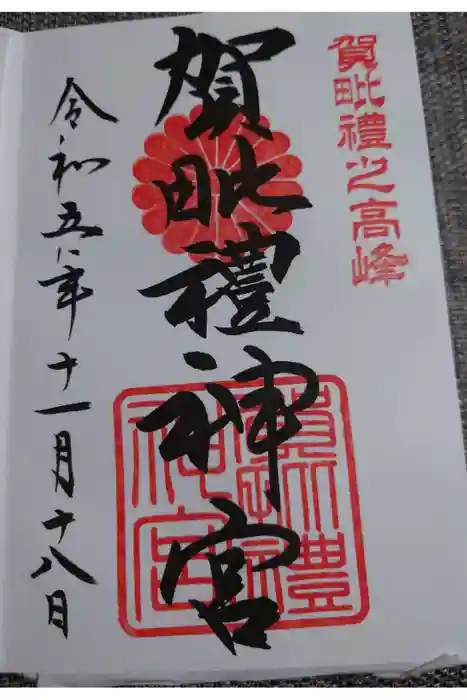 賀毗禮之高峰
賀毗禮神宮
賀毗禮神宮
令和五年十一月十八日